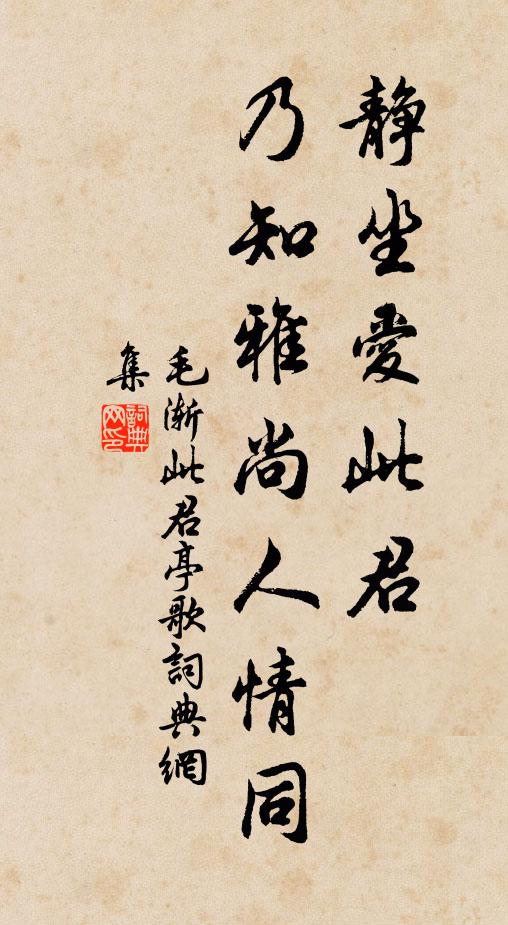 靜坐愛此君
乃知雅尚人情同
毛漸此君亭歌詞典網
集
詞典网印